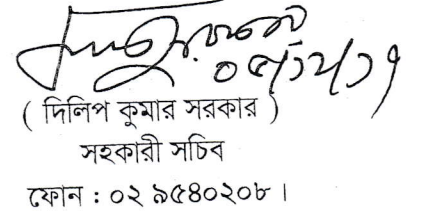 ০৫/১২/১৭
( দিলিপ কুমার সরকার )
সহকারী সচিব
ফোন : ০২ ৯৫৪০২০৮ ।